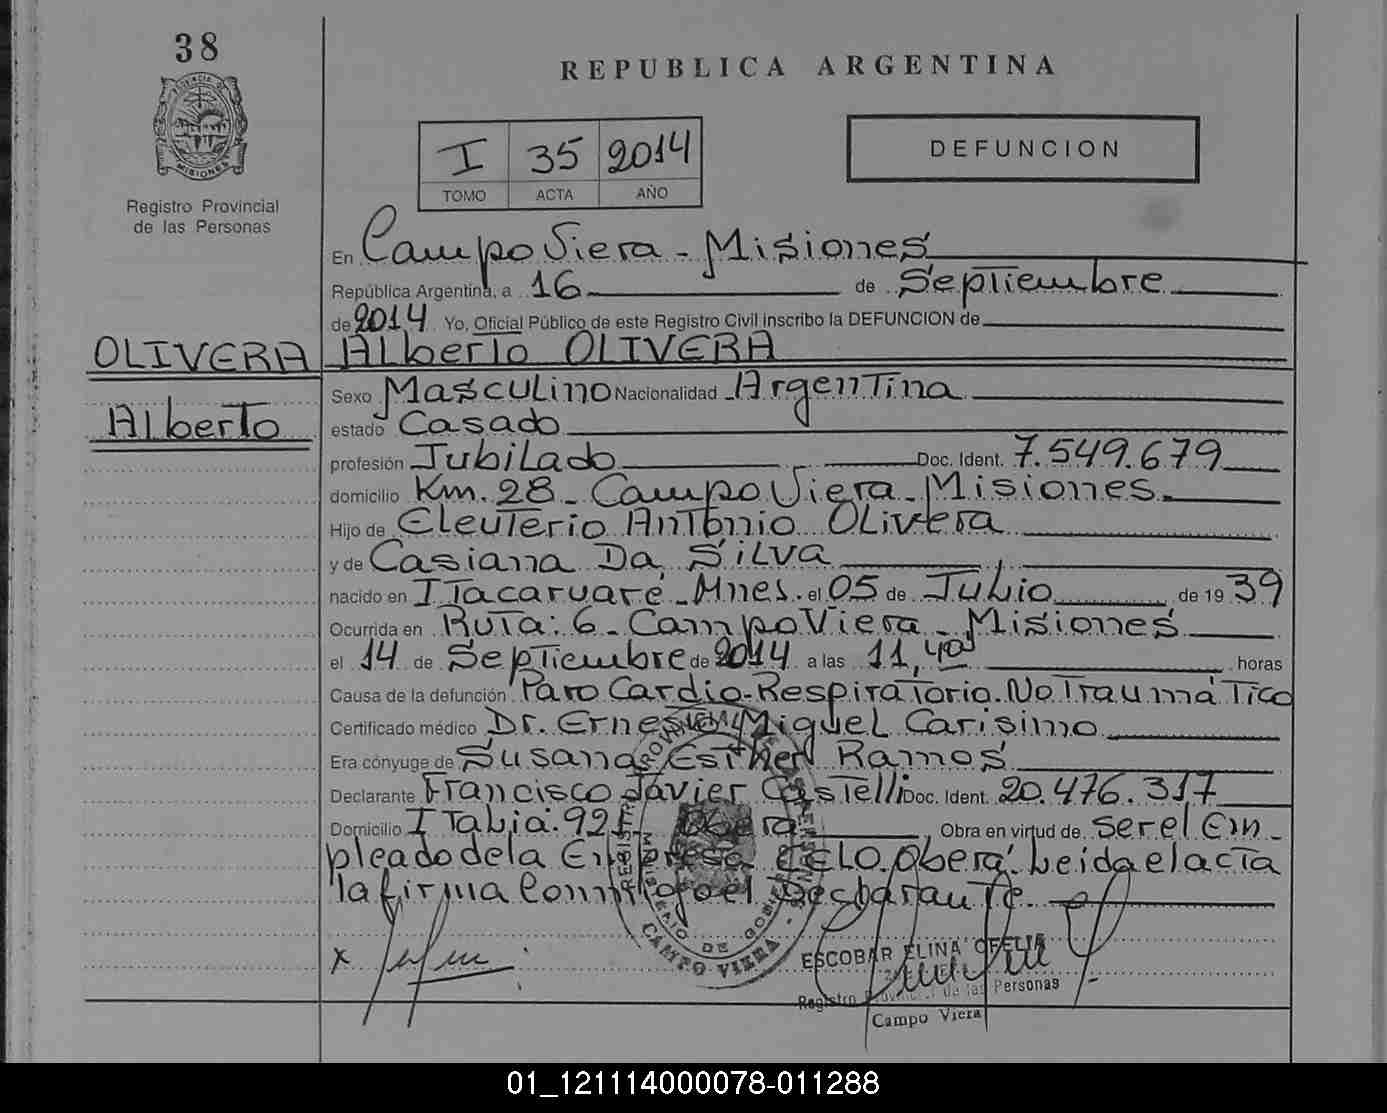 38
REPUBLICA ARGENTINA
PROVINCIA DE
MISIONES
I 35 2014
TOMO ACTA AÑO
DEFUNCION
Registro Provincial
de las Personas
En Campo Viera - Misiones
República Argentina, a 16 de Septiembre
de 2014 Yo, Oficial Público de este Registro Civil inscribo la DEFUNCION de
OLIVERA Alberto OLIVERA
Sexo Masculino Nacionalidad Argentina
Alberto
estado Casado
profesión Jubilado Doc. Ident. 7.549.679
domicilio Km. 28 - Campo Viera - Misiones.
Hijo de Eleuterio Antonio Olivera
y de Casiana Da Silva
nacido en Itacaruaré - Mnes. el 05 de Julio de 19 39
Ocurrida en Ruta: 6 - Campo Viera - Misiones
el 14 de Septiembre de 2014 a las 11,40 horas
Causa de la defunción Paro Cardio-Respiratorio. No Traumático
Certificado médico Dr. Ernesto Miguel Carisimo
Era cónyuge de Susana Esther Ramos
Declarante Francisco Javier Castelli Doc. Ident. 20.476.317
Domicilio Italia. 921. Oberá , Obra en virtud de ser el Em-
pleado de la Empresa CELO. Oberá. Leida el acta
la firma conmigo el Declarante
x
REGISTRO PROVINCIAL DE LAS PERSONAS
MINISTERIO DE GOBIERNO
CAMPO VIERA
ESCOBAR ELINA OFELIA
Registro Provincial de las Personas
Campo Viera
01_121114000078-011288